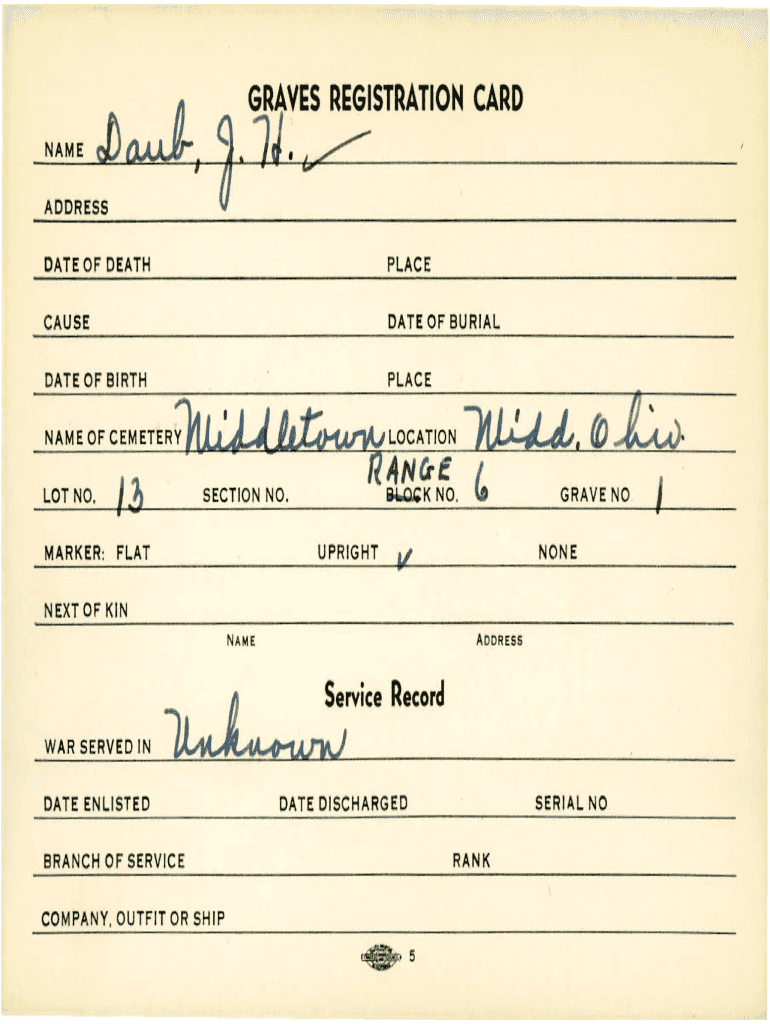 GRAVES REGISTRATION CARD
NAME Daub, J. H. ✓
ADDRESS
DATE OF DEATH PLACE
CAUSE DATE OF BURIAL
DATE OF BIRTH PLACE
NAME OF CEMETERY Middletown LOCATION Midd. Ohio.
RANGE
LOT NO. 13 SECTION NO. BLOCK NO. 6 GRAVE NO 1
MARKER: FLAT UPRIGHT ✓ NONE
NEXT OF KIN
NAME ADDRESS
Service Record
WAR SERVED IN Unknown
DATE ENLISTED DATE DISCHARGED SERIAL NO
BRANCH OF SERVICE RANK
COMPANY, OUTFIT OR SHIP
5